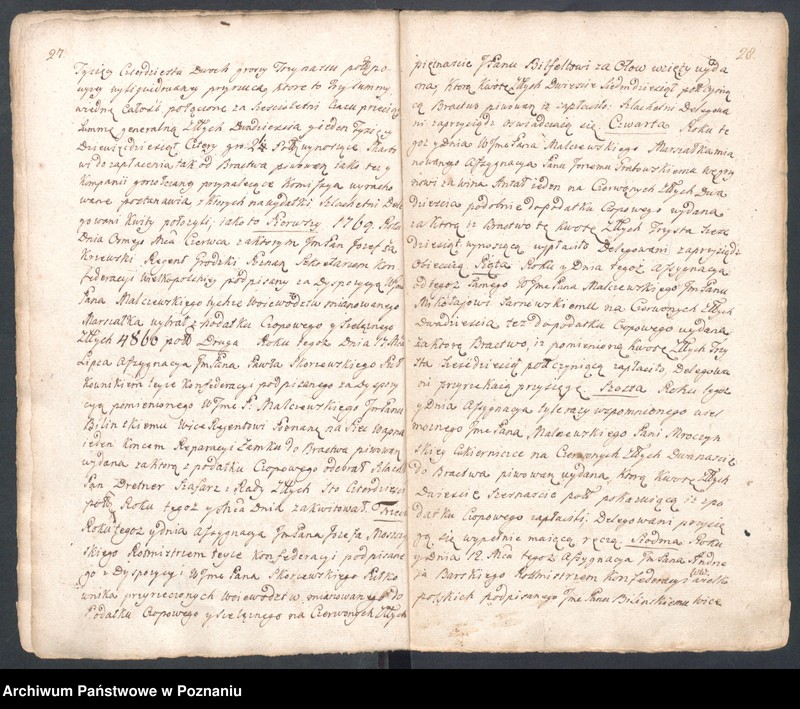 27.
Tysięcy Czterdziesta Dwoch groszy Trzynastu
wyzey wylikwidowaną przyrzucą, ktore to Trzy Summy
w iedną Całość połączone za Sześcioletni Czas przeszły
Summę generalną Złłtych Dwadziescia y ieden Tysięcy
Dziewięćdziesiąt Cztery gr.
do zapłacenia tak od Bractwa piwowar. iako tez y
Kompanii gorzołczaney przynależące Kommissya wyracho
wane postanawia z ktorych na wydatki Szlachetni Dele
gowani Kwity położyli, iako to Pierwszy 1769. Roku
Dnia Osmego Mca Czerwca z ktorym Jm Pan Jozef
Krzewski Regent Grodzki Poznań. Sekretarzem Kon
federacyi Wielkopolskiey podpisany za Dyspozycyą
Pana Malczewskiego tychze Woiewodztw mianowanego
Marszałka wybrał z podatku Czopowego y Szelęznego
Złłtych 4860 Druga Roku tegoz Dnia 17 Mca
Lipca Assygnacya Jm Pana Pawła Skorzewskiego Puł
kownikiem teyze Konfederacyi podpisanego za Dyspozy
cyą pomienionego WJme P. Malczewskiego Jm Panu
Bilinskiemu Wice Rejentowi Poznan. na
ieden Koncem Reparacyi Zamku do Bractwa piwowar.
wydana za ktorą z podatku Czopowego odebrał
Pan Dretner Kasarz z Rady Złłtych Sto Czterdziesci
Roku tegoz y Mca Dnia zakwitował. Trzecia
Roku tegoz y dnia Assygnacya Jm Pana Jozefa
skiego Rotmistrzem teyze Konfederacyi podpisane
go z Dyspozycyi WJme Pana Skorzewskiego Pułko
wnika przyrzeczonych Woiewodztw mianowanego do
Podatku Czopowego y szelęznego na Czerwonych Złłtych
28.
piętnascie JPanu Bilfeltowi za Ołow wzięty wyda
na, Ktorą Kwotę Złłtych Dwiescie Siedmdziesiąt
cą Bractwo piwowar. iz zapłaciło. Szlachetni Delegowa
ni zaprzysiądz oswiadczaią się. Czwarta Roku te
goz y Dnia WJme Pana Malczewskiego Marszałka mia
nowanego Assygnacya Panu Jgnacemu Grabowskiemu Węgrzy
nowi za Wina Antał ieden na Czerwonych Złłtych Dwa
dziescia podobnie do podatku Czopowego wydana
za ktorą iz Bractwo tę kwotę Złłtych Trzysta Szesc
dziesiąt wynoszącą wypłaciło Delegowani zaprzysiądz
Obiecuią. Piąta Roku y Dnia tegoz Assygnacya
od tegoz samego WJme Pana Malczewskiego Jm Panu
Mikołajowi Sarnowskiemu na Czerwonych Złłtych
Dwadziescia tez do podatku Czopowego wydana
za ktorą Bractwo, iz pomienioną kwotę Złłtych Trzy
sta Szescdziesiąt czyniącą zapłaciło, Delegowa
ni przyrzekaią przysięgę. Szosta Roku tegoz
y Dnia Assygnacya tylerazy wzpomnionego wiel
moznego Jme Pana Malczewskiego Pani Mroczyn
skiey Cukierniczce na Czerwonych Złłtych Dwanascie
do Bractwa piwowar. wydana, Ktorą Kwotę Złłtych
Dwiescie Szesnascie pokazuiącą iz z po
datku Czopowego zapłacili. Delegowani przysię
gą się wypełnić maiącą ręczą. Siodma Roku
y Dnia 12. Mca tegoz Assygnacya Jm Pana Andrze
ja Barskiego Rotmistrzem Konfederacyi WW: wielko
polskich podpisanego Jme Panu Bilinskiemu wice
Archiwum Państwowe w Poznaniu